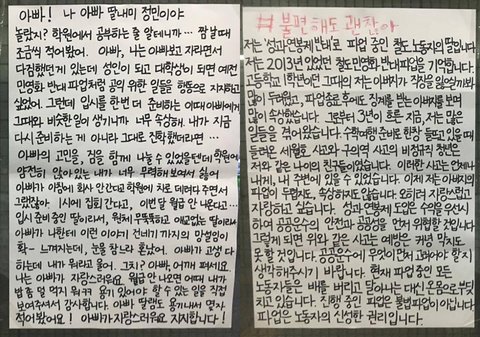 아빠! 나 아빠 딸내미 정민이야
놀랐지? 학원에서 공부하는 줄 알테니까… 짬날때
조금씩 적어봤어. 아빠, 나는 아빠보고 자라면서
다짐했던게 있는데 성인이 되고 대학생이 되면 예전
민영화 반대 파업처럼 공익 위한 일들을 행동으로 지지하고
싶었어. 그런데 입시를 한번 더 준비하는 이때 아빠에게
그때와 비슷한 일이 생기니까 너무 속상해. 내가 지금
다시 준비하는 게 아니라 그대로 진학했더라면…
아빠의 고민을, 짐을 함께 나눌 수 있었을텐데 학원에
얌전히 앉아있는 내가 너무 무력해 보여서 싫어
아빠가 아침에 회사 안간다고 학원에 차로 데려다 주면서
그랬잖아. 1시에 집회 간다고, 이번 달 월급 안 나온다고…
입시 준비중인 딸이라서, 원체 무뚝뚝하고 애교없는 딸이라서
아빠가 나한테 이런 이야기 건네기 까지의 망설임이
확- 느껴지는데, 눈물 참느라 혼났어. 아빠가 고생 다
하는데 내가 뭐라고 울어. 그치? 아빠, 어깨 펴세요.
나는 아빠가 자랑스러워요. 월급 안 나오면 어때! 내가
밥 좀 덜 먹지 뭐ㅋㅋ 용기 있어야 할 수 있는 일을 직접
보여주셔서 감사합니다. 아빠 딸램도 용기내서 몇자
적어봤어요! 아빠가 자랑스러워요 지지합니다!
#불편해도 괜찮아
저는 '성과연봉제 반대'로 파업 중인 철도 노동자의 딸입니다.
저는 2013년 있었던 철도민영화 반대파업을 기억합니다.
고등학교 1학년이던 그때의 저는 아버지가 직장을 잃을까봐
많이 두려웠고, 파업종료후에도 징계를 받는 아버지를 보며
많이 속상했습니다. 그로부터 3년이 흐른 지금, 저는 많은
일들을 겪어왔습니다. 수학여행 준비로 한창 들떠있을 때
들려온 세월호 사고와 구의역 사고의 비정규직 청년은
저와 같은 나이의 친구들이었습니다. 이러한 사고는 언제나
내게, 내 주변에 있을 수 있었습니다. 이제 저는 아버지의
파업이 두렵지도, 속상하지도 않습니다. 오히려 자랑스럽고
자랑하고 싶습니다. 성과연봉제 도입은 수익을 우선시
하여 공공운수의 안전과 공공성을 먼저 위협할 것입니다.
그렇게 되면 위와 같은 사고는 예방은 커녕 막지도
못 할 것입니다. 공공운수에 무엇이 먼저 고려돼야 할지
생각해주시기 바랍니다. 현재 파업 중인 모든
노동자들은 배를 버리고 달아나는 대신 온몸으로 부딪
치고 있습니다. 진행 중인 파업은 불법파업이 아닙니다.
파업은 노동자의 신성한 권리입니다.